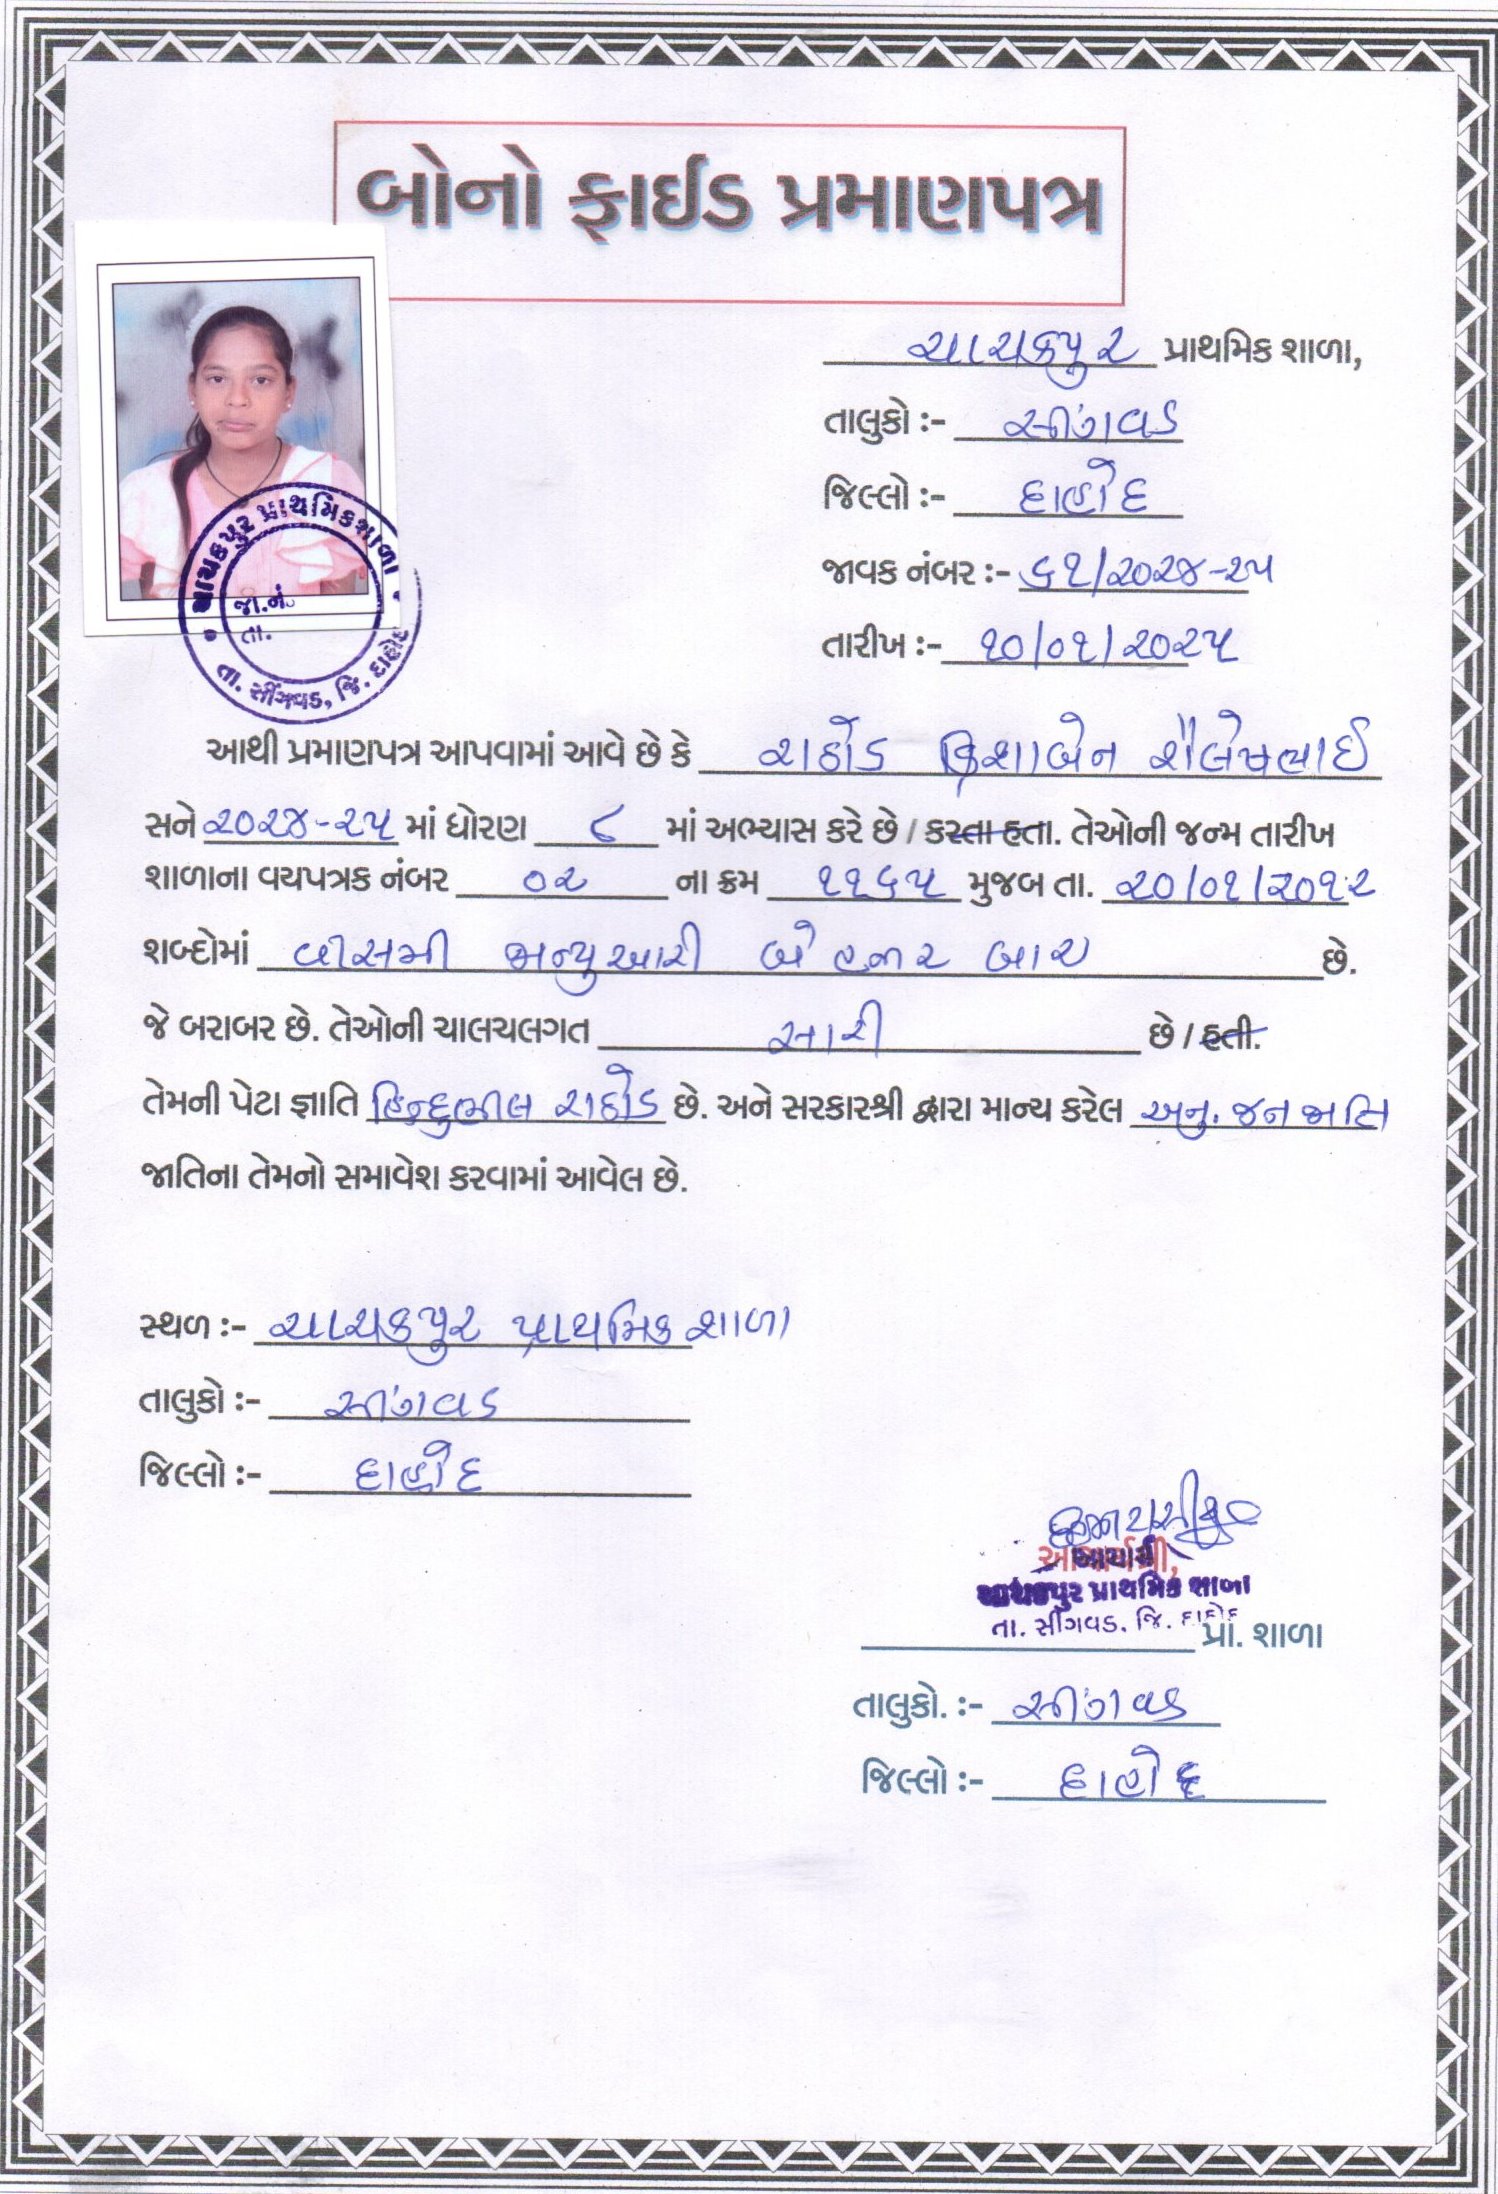 બોનો ફાઈડ પ્રમાણપત્ર
ચાચકપુર પ્રાથમિક શાળા,
તાલુકો :- સીંગવડ
જિલ્લો :- દાહોદ
જાવક નંબર :- ૬૧/૨૦૨૪-૨૫
તારીખ :- ૧૦/૦૧/૨૦૨૫
ચાચકપુર પ્રાથમિકશાળા
જા.નં.
તા.
તા. સીંગવડ, જિ. દાહોદ
આથી પ્રમાણપત્ર આપવામાં આવે છે કે રાઠોડ ક્રિશાબેન શૈલેષભાઈ
સને ૨૦૨૪-૨૫ માં ધોરણ ૮ માં અભ્યાસ કરે છે / કરતા હતા. તેઓની જન્મ તારીખ
શાળાના વયપત્રક નંબર ૦૨ ના ક્રમ ૧૧૬૫ મુજબ તા. ૨૦/૦૧/૨૦૧૨
શબ્દોમાં વીસમી જાન્યુઆરી બે હજાર બાર છે.
જે બરાબર છે. તેઓની ચાલચલગત સારી છે / હતી.
તેમની પેટા જ્ઞાતિ હિન્દુભીલ રાઠોડ છે. અને સરકારશ્રી દ્વારા માન્ય કરેલ અનુ. જન જાતિ
જાતિના તેમનો સમાવેશ કરવામાં આવેલ છે.
સ્થળ :- ચાચકપુર પ્રાથમિક શાળા
તાલુકો :- સીંગવડ
જિલ્લો :- દાહોદ
આચાર્યશ્રી,
આચાર્ય
ચાચકપુર પ્રાથમિક શાળા
તા. સીંગવડ. જિ. દાહોદ
પ્રા. શાળા
તાલુકો. :- સીંગવડ
જિલ્લો :- દાહોદ